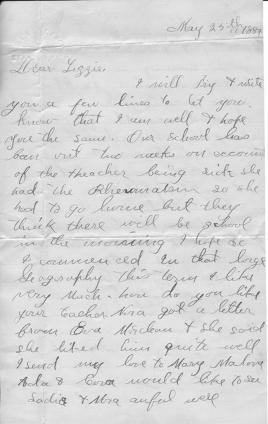 May 25th 1884
Dear Lizzie.
I will try & write
you a few lines to let you
know that I am well & hope
you the same. Our school has
ban out two weeks on account
of the theacher being sick she
had the Rheumatism so she
had to go home but they
think there will be school
in the morning I hope so
I commenced In that large
Geography this term & like
very much. how do you like
your teacher Nora got a letter
from Eva & she said
she liked him quite well
I send my love to Mary
Ada & Cora would like to see
Sadie & awful well